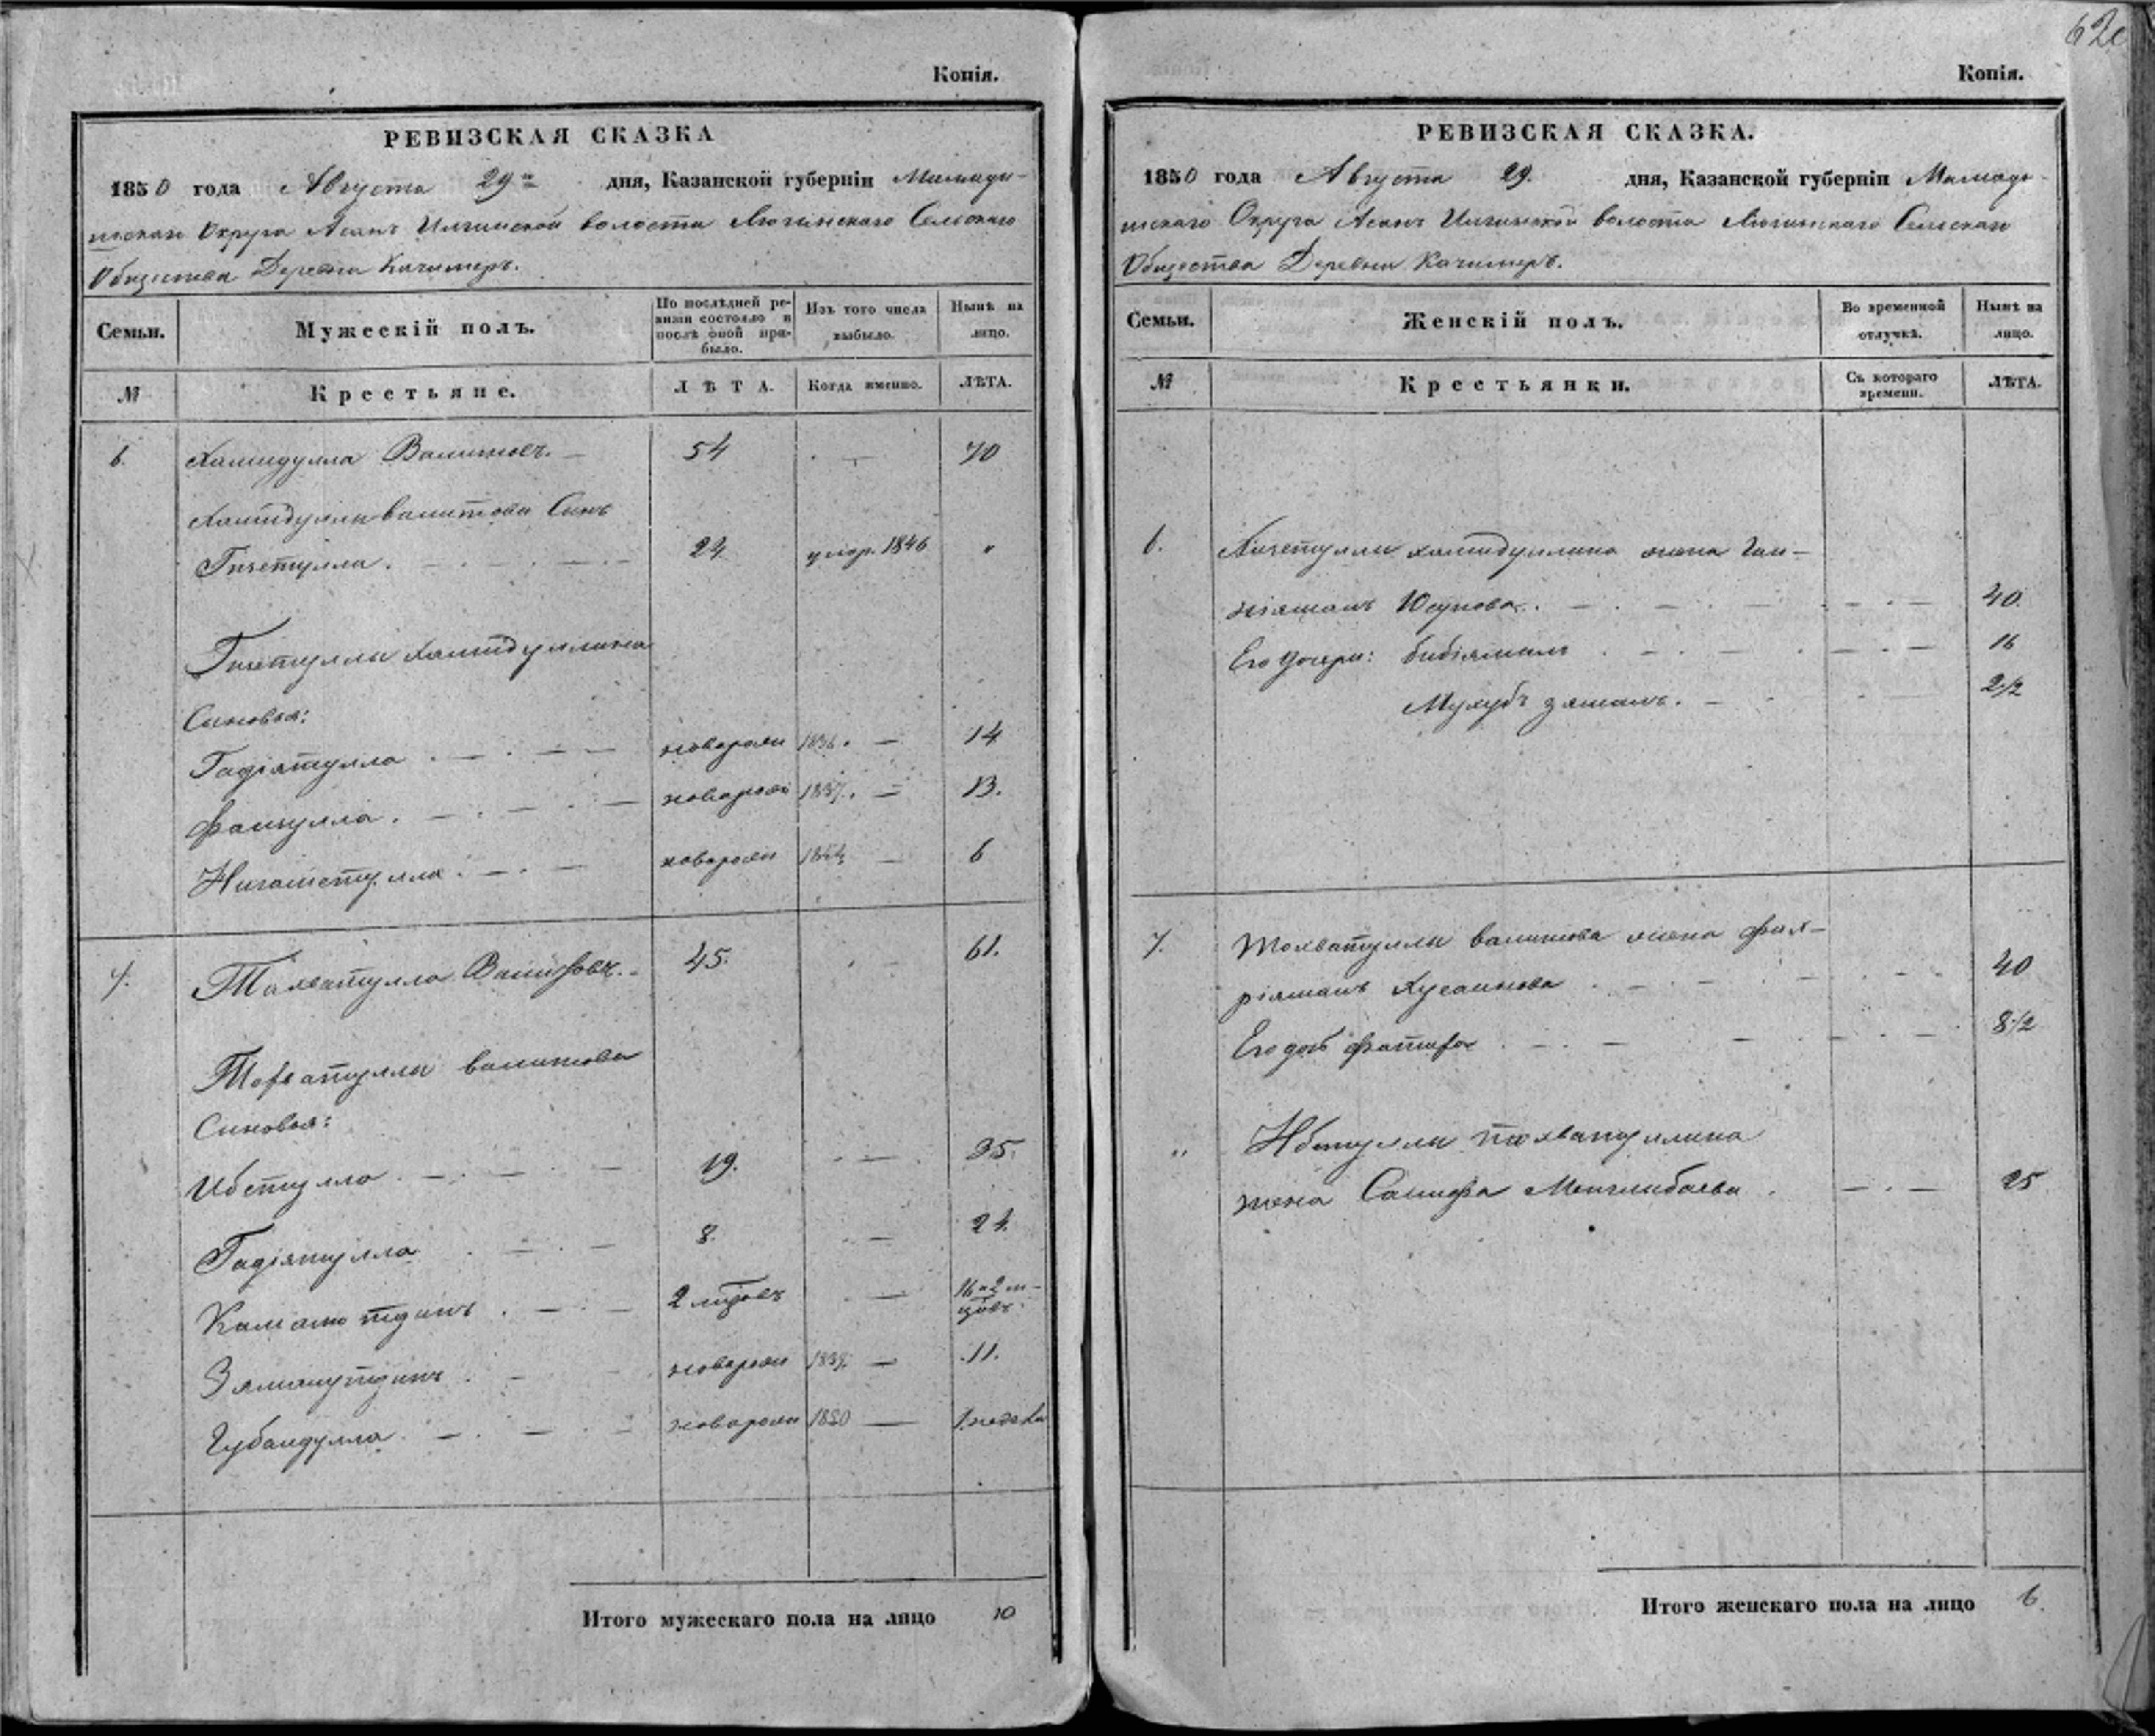 62
Копія.
РЕВИЗСКАЯ СКАЗКА
1850 года Августа 29го дня, Казанской губерніи Мамады-
шскаго Округа Асанъ Илгинской волости Сельскаго
Общества Деревни Качимеръ.
Семьи. Мужескій полъ. По послѣдней ревизіи состояло и послѣ оной прибыло. Изъ того числа выбыло. Нынѣ на лицо.
№ Крестьяне. ЛѢТА. Когда именно. ЛѢТА.
6. Хамидулла Валитовъ. — 54 — 70
Хамидуллы Валитова Сынъ
24 умер. 1846 "
Хамидуллина
Сыновья:
Гадіятулла новорож 1836. — 14
новорож 1837. — 13.
Нигаметулла новорож 1844 — 6
7. Тохватулла Валитовъ. 45. — 61.
Тохватуллы Валитова
Сыновья:
Ибетулла 19. — 35.
Гадіятулла 8. — 24.
Камалютдинъ 2 — 16 и 2 м-
цовъ.
Зямалутдинъ новорож 1839. — 11.
Губайдулла новорож 1850 — 1 неделя
Итого мужескаго пола на лицо 10
Копія.
РЕВИЗСКАЯ СКАЗКА.
1850 года Августа 29. дня, Казанской губерніи Мамады-
шскаго Округа Асанъ Илгинской волости Сельскаго
Общества Деревни Качимеръ.
Семьи. Женскій полъ. Во временной отлучкѣ. Нынѣ на лицо.
№ Крестьянки. Съ котораго времени. ЛѢТА.
6. Хамидуллина жена
Юсупова. 40.
Его дочери: Бибіямалъ 16
зямалъ. 2 1/2
7. Тохватуллы Валитова жена Фах-
ріямалъ Хусаинова 40
Его дочь Фатиха 8 1/2
" Ибетуллы Тохватуллина
жена Салиха Менглибаева 25
Итого женскаго пола на лицо 6.